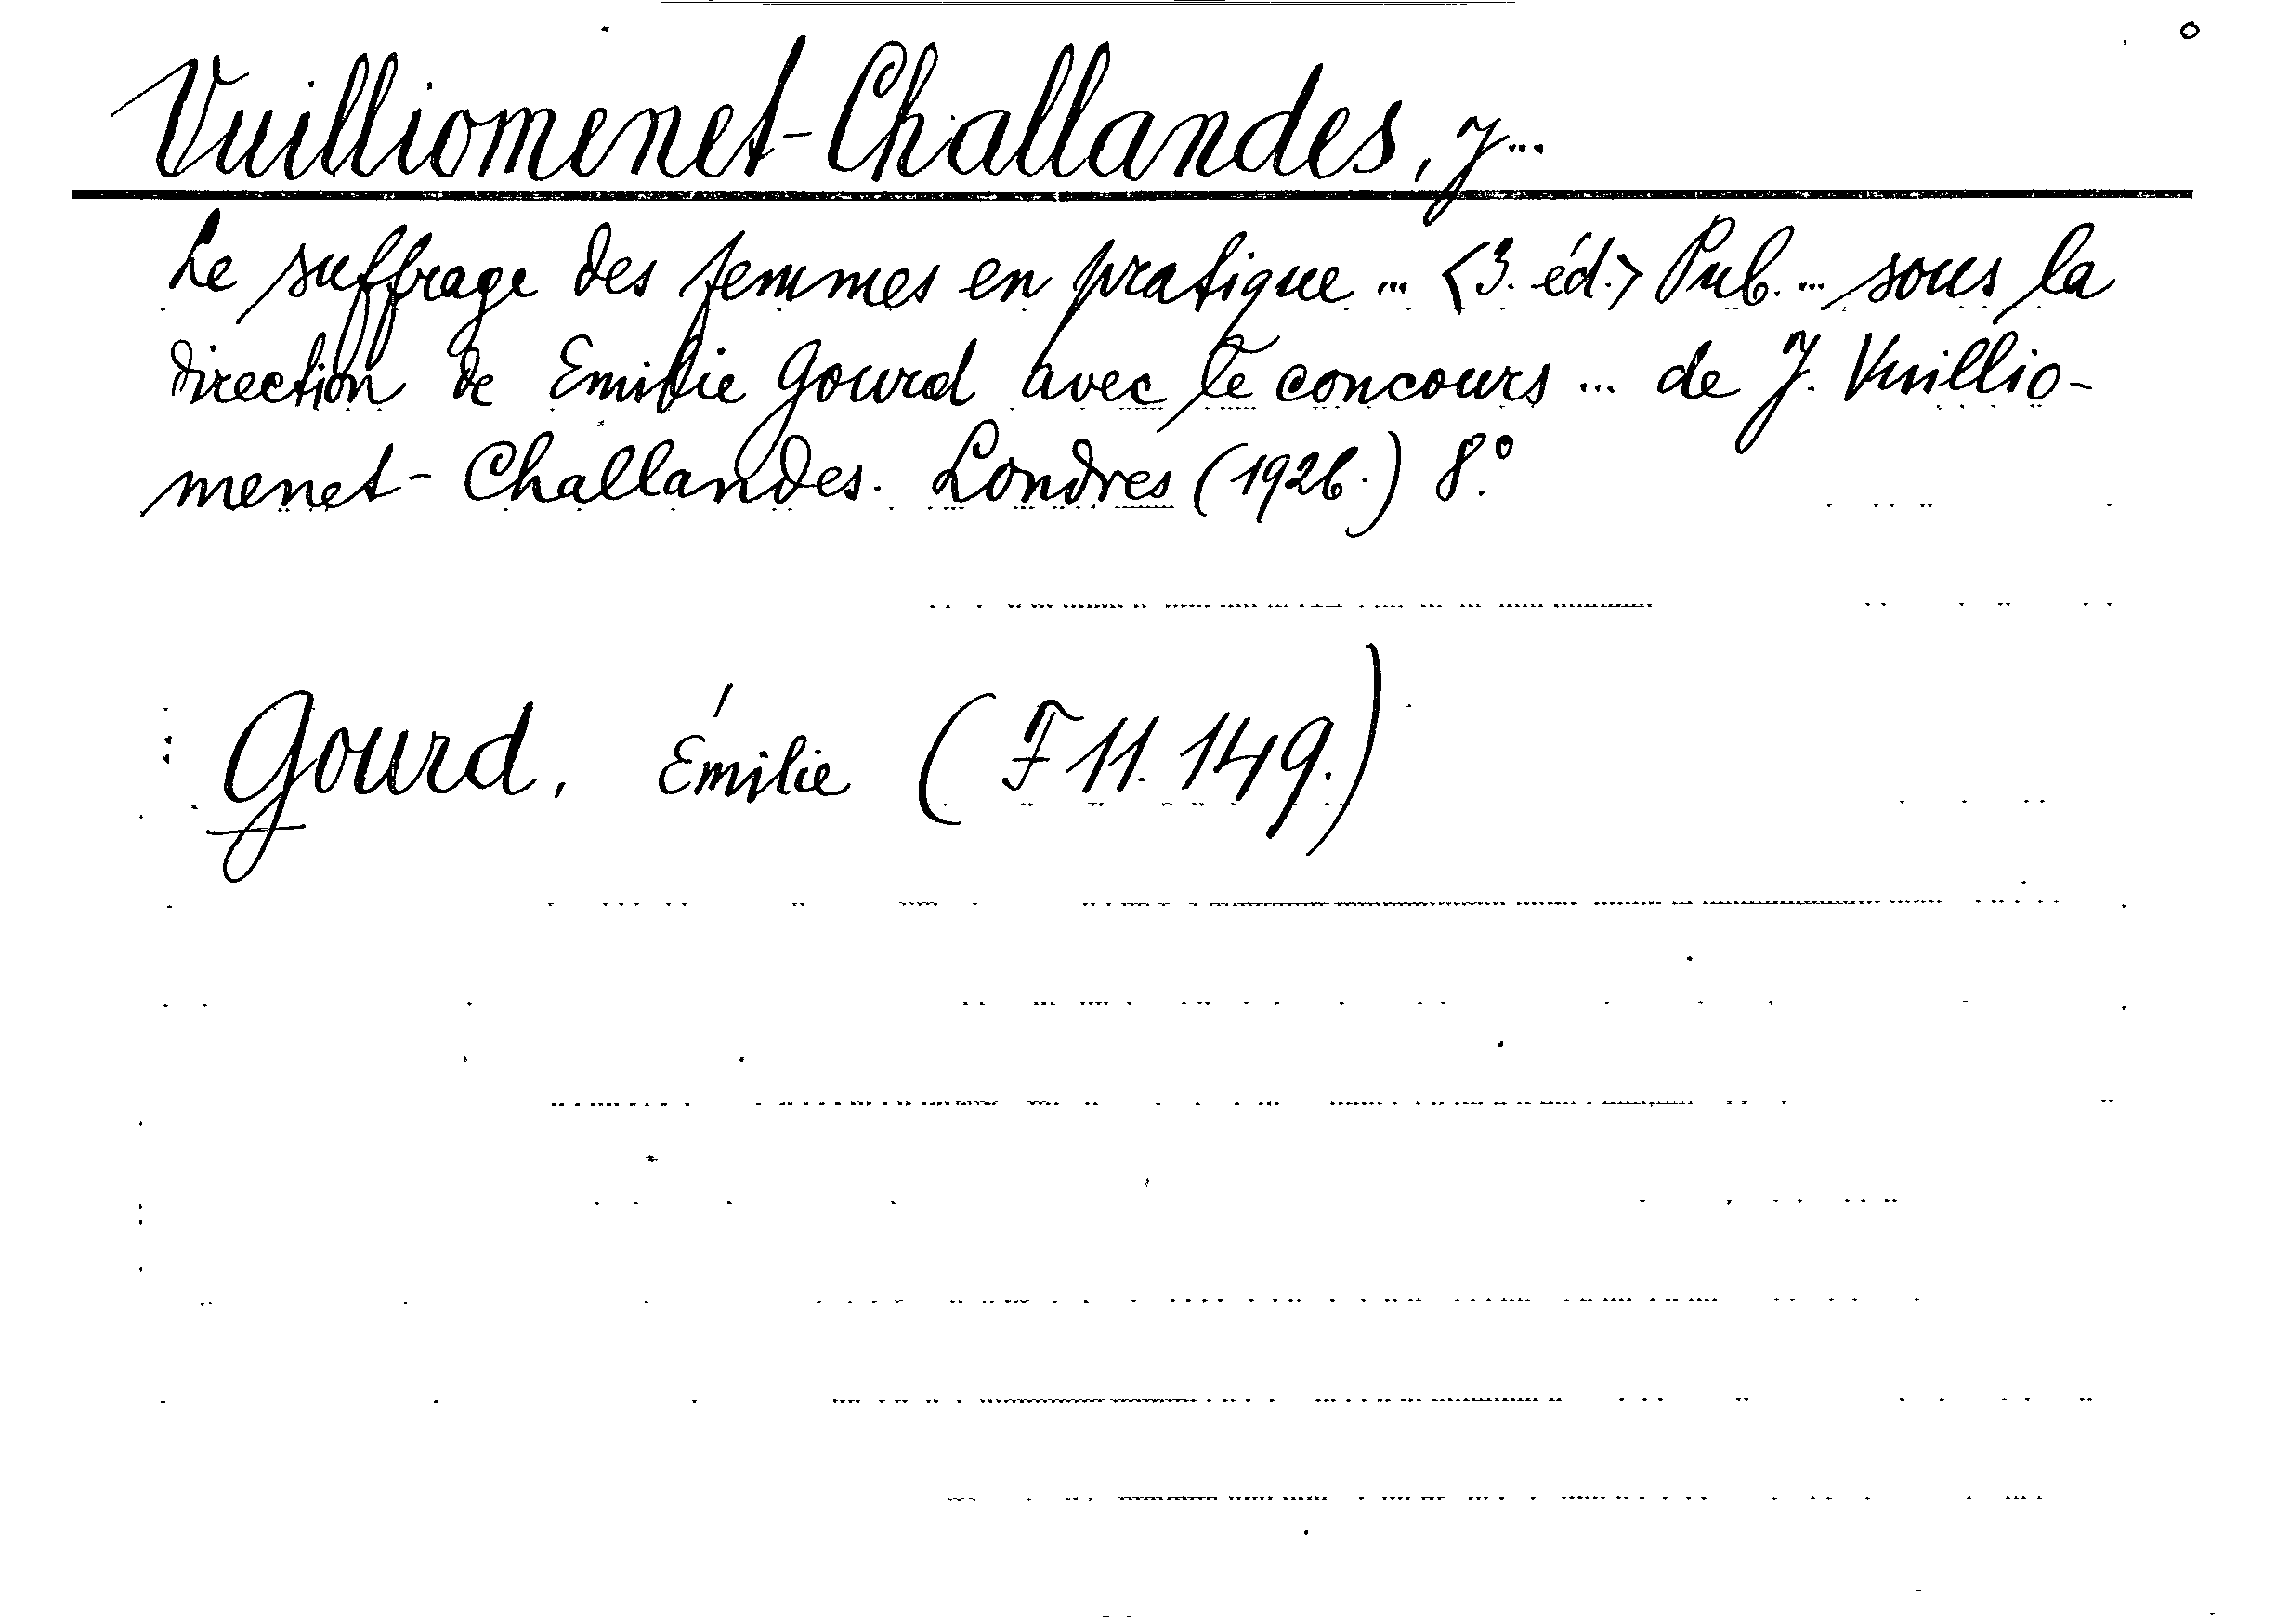 Vuilliomenet-Challandes, J...
Le suffrage des femmes en pratique ... <3. éd.> Pub. ... sous la
direction de Emilie Gourd avec le concours ... de J. Vuillio-
menet-Challandes. Londres (1926.) 8°.
Gourd, Émilie (F 11. 149.)